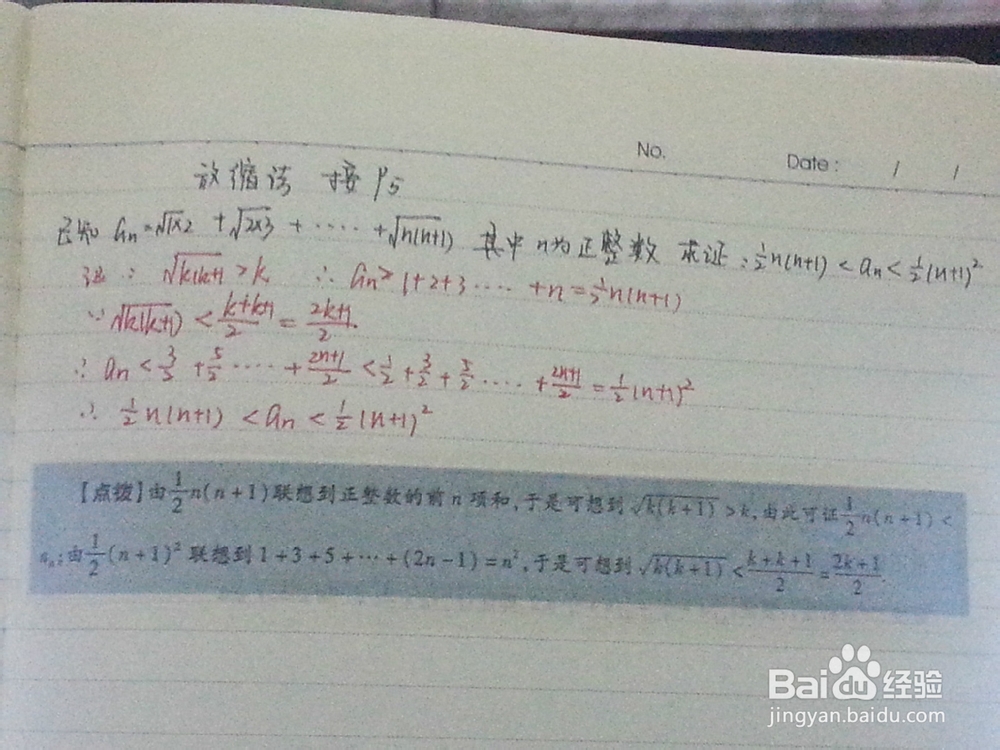 No. Date: / /
放缩法 接P5
已知 an=√1×2 + √2×3 + ···· + √n(n+1) 其中n为正整数 求证: ½n(n+1) < an < ½(n+1)²
证: √k(k+1 > k ∴ an > 1+2+3 ···· + n = ½n(n+1)
∵ √k(k+1) < k+k+1/2 = 2k+1/2.
∴ an < 3/2 + 5/2 ···· + 2n+1/2 < ½ + 3/2 + 5/2 ···· + 2n+1/2 = ½(n+1)²
∴ ½n(n+1) < an < ½(n+1)²
【点拨】由½n(n+1)联想到正整数的前n项和,于是可想到√k(k+1) > k,由此可证½n(n+1) <
an;由½(n+1)²联想到1+3+5+···+(2n-1)=n²,于是可想到√k(k+1) < k+k+1/2 = 2k+1/2.
Baidu经验
jingyan.baidu.com